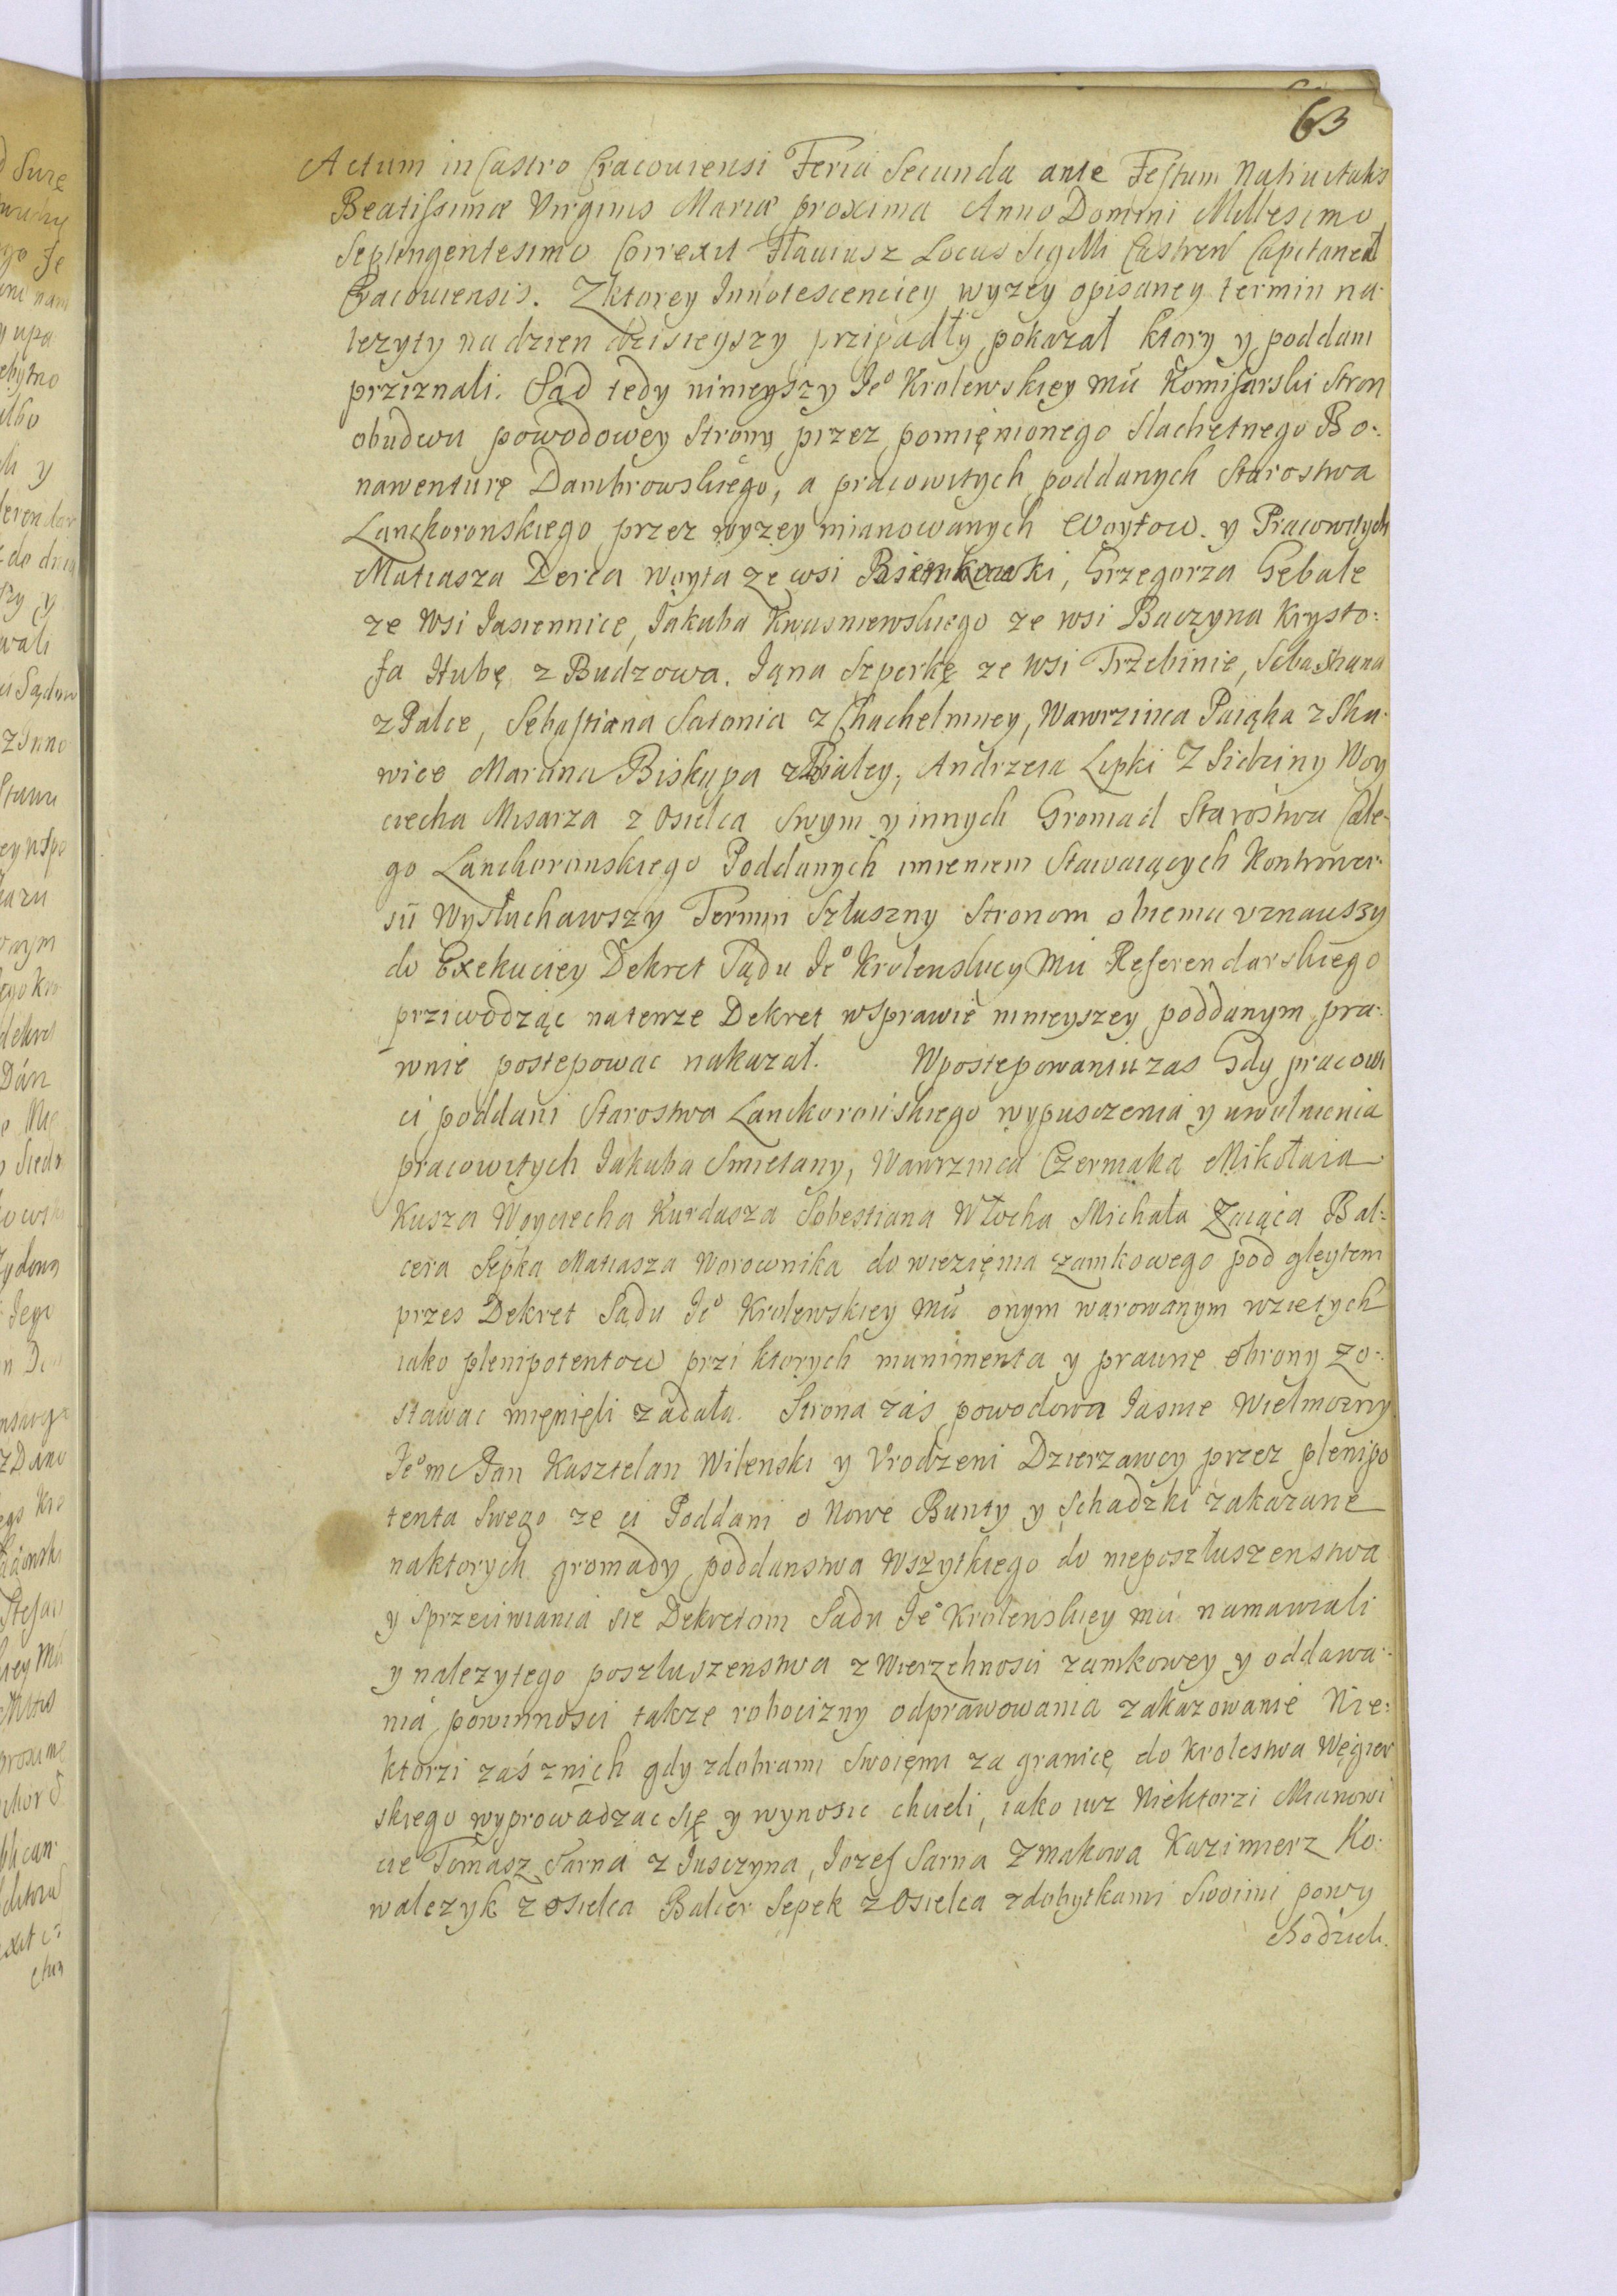 63
Actum in Castro Cracoviensi Feria Secunda ante Festum Nativitatis
Beatissimæ Virginis Mariæ proxima Anno Domini Millesimo
Septengentesimo Correxit Flawiusz Locus Sigilli Castren Capitaneal
Cracoviensis. Zktorey Innotescenciey wyzey opisaney termin na-
lezyty na dzien dzisieyszy przipadły pokazał ktory y poddani
przyznali. Sąd tedy ninieyszy Jeº Krolewskiey Mü Komisarski Stron
obudwu powodowey Strony przez pomięnionego Slachetnego Bo:
nawenturę Dambrowskiego, a pracowitych poddanych Starostwa
Lanckoronskiego przez wyzey mianowanych Woytow. y Pracowitych
Matiasza Derca Woyta ze wsi Bienkowki, Grzegorza Gębale
ze Wsi Jasiennice, Jakuba Kwasniewskiego ze wsi Baczyna Krysto:
fa Hubę z Budzowa. Jąna Szperkę ze Wsi Trzebinie, Sebastiana
z Palce, Sebastiana Satonia z Chachelmney, Wawrzinca Paiąka z Ska-
wice Marcina Biskupa z Bialey, Andrzeia Lipki Z Sidziny Woy
ciecha Misarza z Osielca Swym y innych Gromad Starostwa Całe-
go Lanckoronskiego Poddanych imieniem Stawaiących Kontrower-
sü Wysłuchawszy Termin Szłuszny Stronom obiema vznawszy
do Exekuciey Dekret Sądu Jeº Krolewskiey Mü Referendarskiego
przwodząc natenze Dekret wsprawie ninieyszey poddanym pra-
wnie postepowac nakazał. Wpostepowaniu zas Gdy pracowi
ci poddani Starostwa Lanckorońskiego wypuszczenia y uwolnienia
pracowitych Jakuba Smietany, Wawrzinca Czermaka Mikołaia
Kusza Woyciecha Kurdasza Sobestiana Włocha Michała Zaiąca Bal:
cera Sepka Matiasza Worownika do wiezięnia zamkowego pod gleytem
przes Dekret Sadu Jeº Krolewskiey Mü onym warowanym wzietych
iako plenipotentow przi ktorych munimenta y prawne obrony zo-
stawac mięnięli ządała. Strona zaś powodowa Jasnie Wielmozny
Jeºmc Pan Kasztelan Wilenski y Vrodzeni Dzierzawcy przez plenipo
tenta Swego ze ci Poddani o Nowe Bunty y Schadzki zakazane
naktorych gromady poddanstwa Wszytkiego do nieposzłuszenstwa
y sprzeciwiania sie Dekretom Sadu Jeº Krolewskiey mü namawiali
y nalezytego poszluszenstwa z Wierzchnosci zamkowey y oddawa-
nia powinnosci takze robocizny odprawowania zakazowanie Nie:
ktorzi zaś znich gdy zdobrami Swoięmi za granicę do Krolestwa Węgier
skiego wyprowadzac się y wynosic chcieli, iako iuz Niektorzi Mianowi
cie Tomasz Sarna z Jusczyna, Jozef Sarna Zmakowa Kazimierz Ko-
walczyk z Osielca Balcer Sepek z Osielca zdobytkami Swoimi powy
chodzieli.